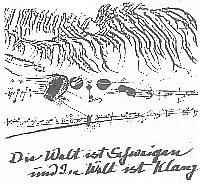 Die Welt ist Schweigen
und die Welt ist Klang